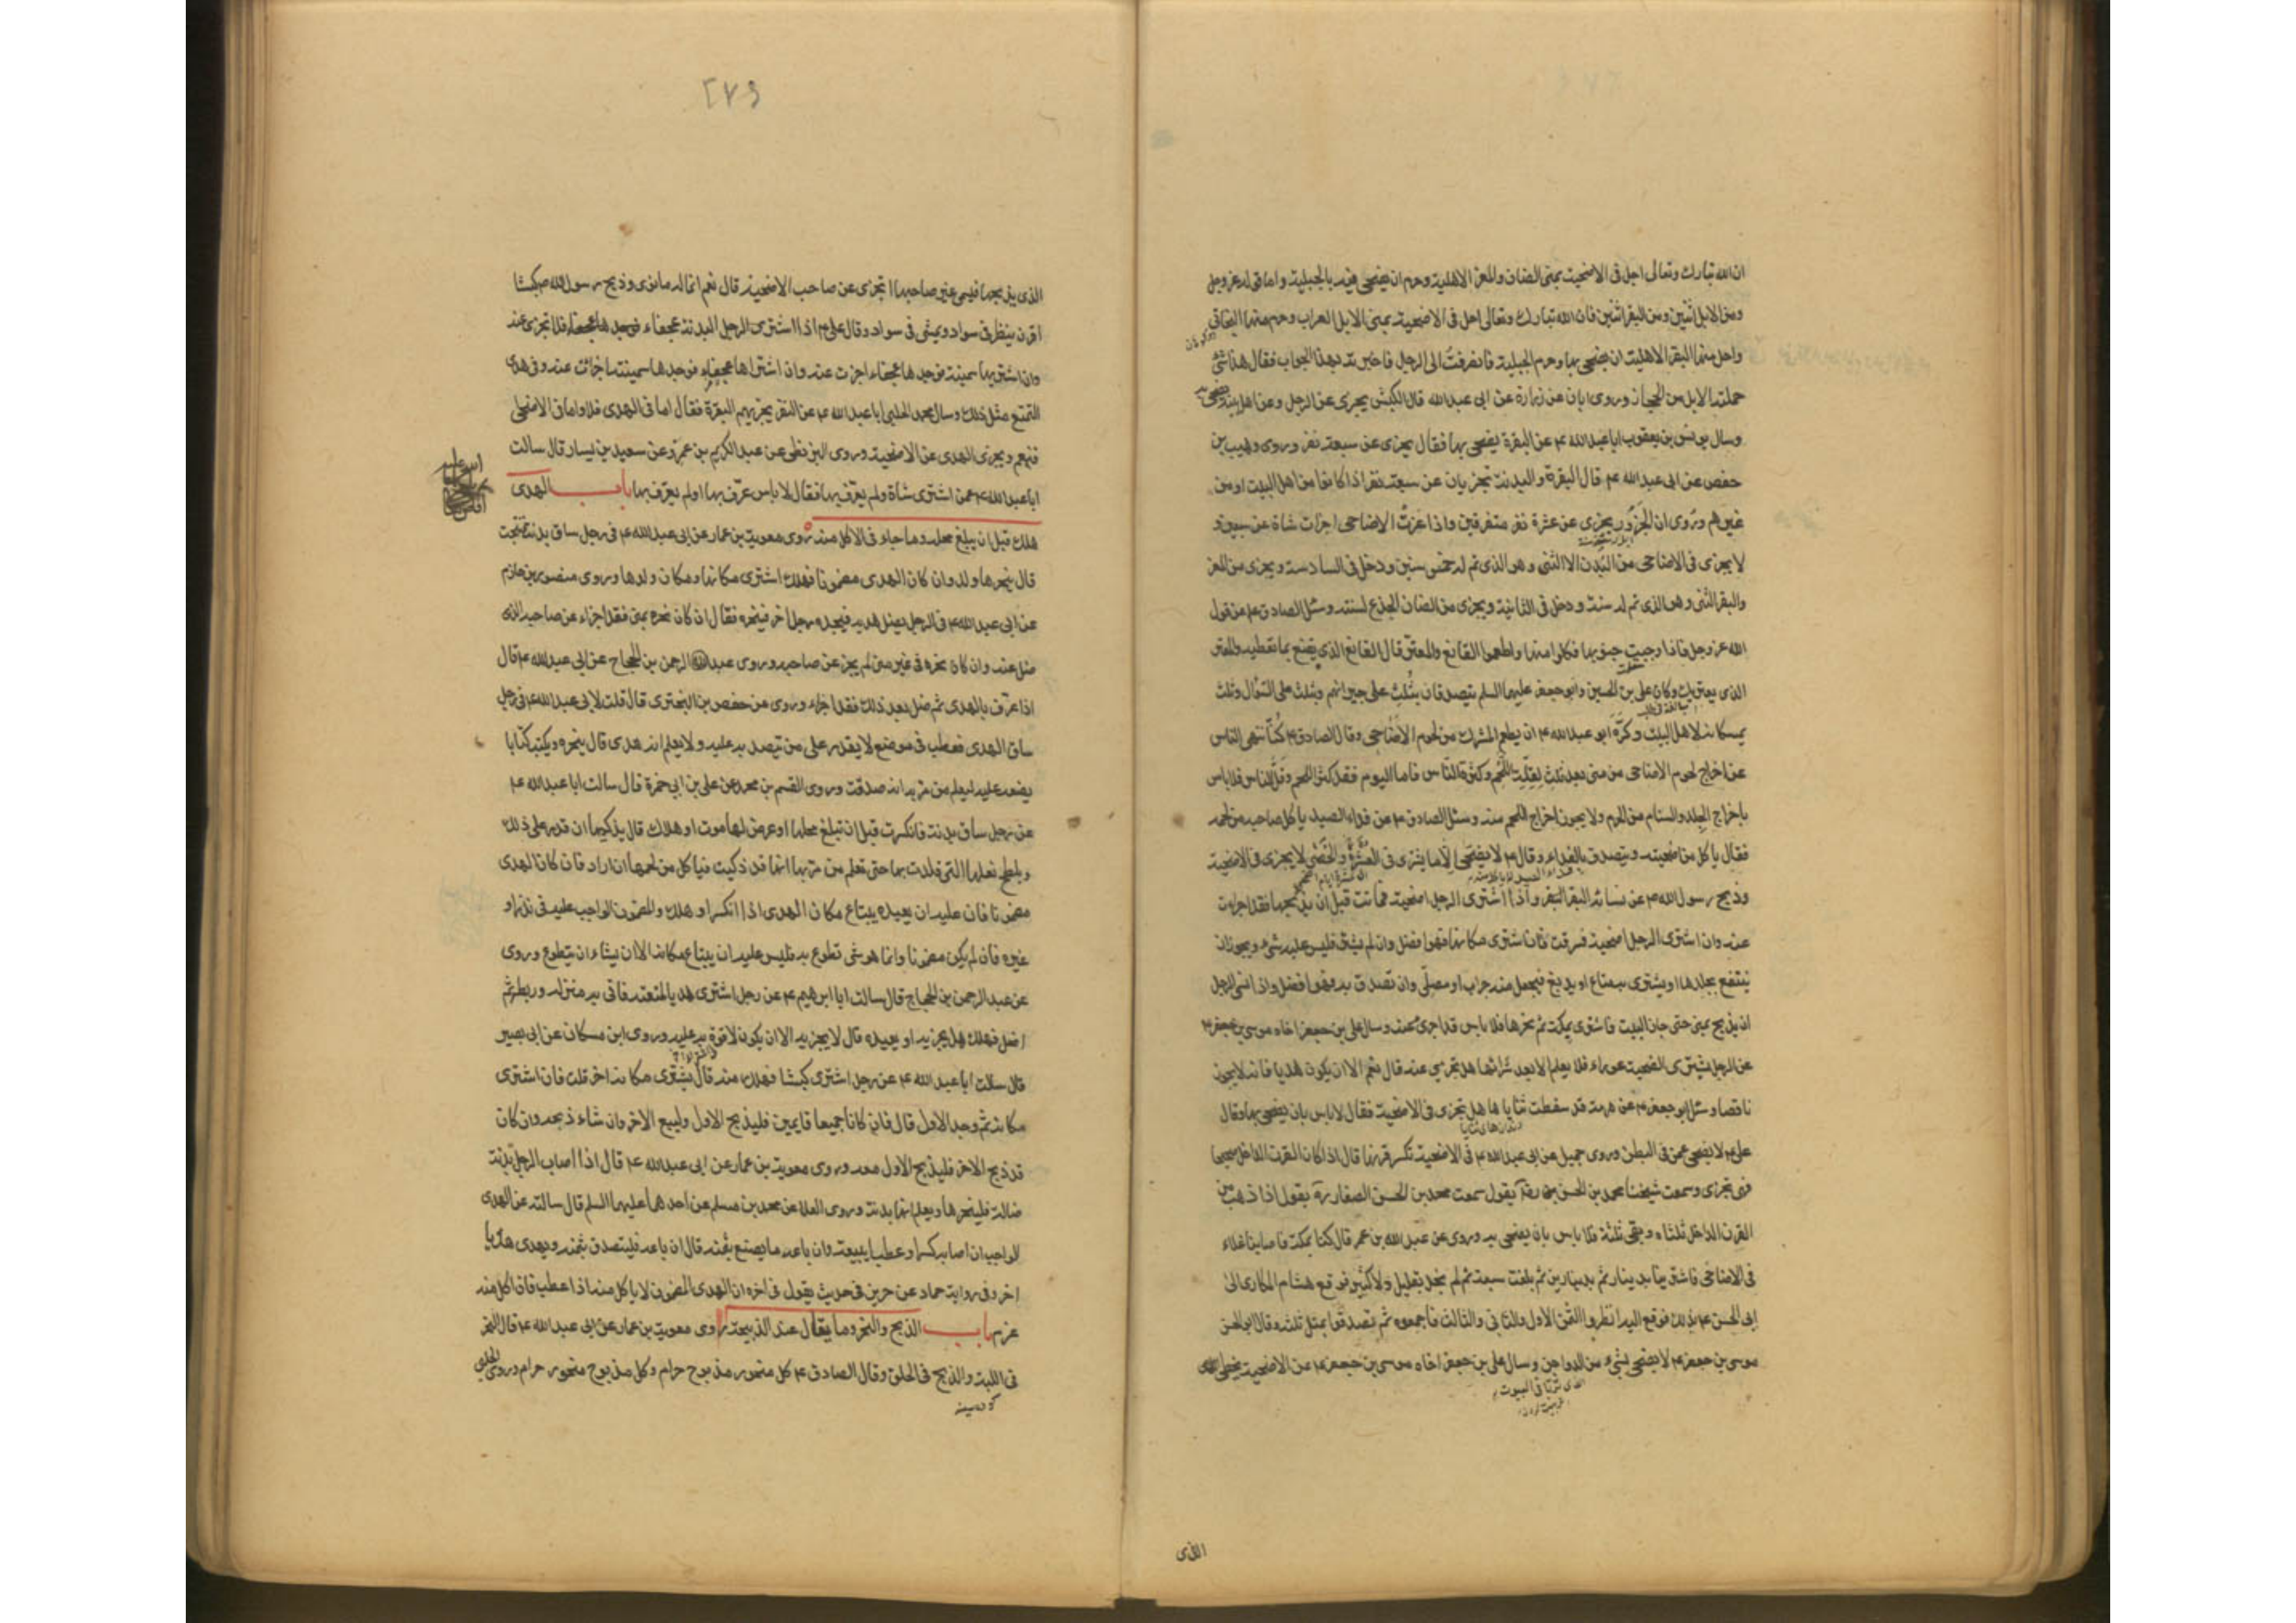 ان الله تبارك وتعالى احل فى الاضحية بمنى الضان والمعز الاهلية وحرم ان يضحى فيه بالجبلية واما قوله عز وجل
ومن الابل اثنين ومن البقر اثنين فان الله تبارك وتعالى احل فى الاضحية بمنى الابل العراب وحرم منها البخاتى
واحل منها البقر الاهلية ان يضحى بها وحرم الجبلية فانصرفت الى الرجل فاخبرته بهذا الجواب فقال هذا شئ
حملته الابل من الحجاز وروى ابان عن زرارة عن ابى عبدالله قال الكبش يجزى عن الرجل وعن اهل بيته يضحى به
وسال يونس بن يعقوب ابا عبدالله ع عن البقرة يضحى بها فقال يجزى عن سبعة نفر وروى وهيب بن
حفص عن ابى عبدالله ع قال البقرة والبدنة تجزيان عن سبعة نفر اذا كانوا من اهل البيت او من
غيرهم وروى ان الجزور يجزى عن عشرة نفر متفرقين واذا عزت الاضاحى اجزات شاة عن سبعين و
لا يجزى فى الاضاحى من البدن الا الثنى وهو الذى تم له خمس سنين ودخل فى السادسة ويجزى من المعز
والبقر الثنى وهو الذى تم له سنة ودخل فى الثانية ويجزى من الضان الجذع لسنته وسئل الصادق ع عن قول
الله عز وجل فاذا وجبت جنوبها فكلوا منها واطعموا القانع والمعتر قال القانع الذى يقنع بما تعطيه والمعتر
الذى يعتريك وكان على بن الحسين وابو جعفر عليهما السلم يتصدقان بثلث على جيرانهم وبثلث على السؤال وثلث
يمسكانه لاهل البيت وكره ابو عبدالله ع ان يطعم المشرك من لحوم الاضاحى وقال الصادق ع كنا ننهى الناس
عن اخراج لحوم الاضاحى من منى بعد ثلث لقلة اللحم وكثرة الناس فاما اليوم فقد كثر اللحم وقل الناس فلا باس
باخراج الجلد والسنام من الحرم ولا يجوز اخراج اللحم منه وسئل الصادق ع عن فداء الصيد ياكل صاحبه من لحمه
فقال ياكل من اضحيته ويتصدق بالفداء وقال ع لا يضحى الا بما يشترى فى العشرة والخصى لا يجزى فى الاضحية
وذبح رسول الله ص عن نسائه البقر واذا اشترى الرجل اضحية فماتت قبل ان يذبحها فقد اجزات
عنه وان اشترى الرجل اضحية فسرقت فان اشترى مكانها فهو افضل وان لم يشتر فليس عليه شئ ويجوز ان
ينتفع بجلدها او يشترى به متاع او يدبغ فيجعل منه جراب او مصلى وان تصدق به فهو افضل واذا نسى الرجل
ان يذبح بمنى حتى جاز البيت فاشترى بمكة ثم نحرها فلا باس قد اجزى عنه وسال على بن جعفر اخاه موسى بن جعفر ع
عن الرجل يشترى الضحية عوراء فلا يعلم الا بعد شرائها هل تجزى عنه قال نعم الا ان يكون هديا فانه لا يجوز
ناقصا وسئل ابو جعفر ع عن هرمة قد سقطت ثناياها هل تجزى فى الاضحية فقال لا باس بان يضحى بها وقال
على ع لا يضحى عمن فى البطن وروى جميل عن ابى عبدالله ع فى الاضحية تكسر قرنها قال اذا كان القرن الداخل صحيحا
فهى تجزى وسمعت شيخنا محمد بن الحسن يقول سمعت محمد بن الحسن الصفار ره يقول اذا ذهب من
القرن الداخل ثلثاه وبقى ثلثه فلا باس بان يضحى به وروى عن عبدالله بن عمر قال كنا بمكة فاصابنا غلاء
فى الاضاحى فاشترينا بدينار ثم بدينارين ثم بلغت سبعة ثم لم نجد بقليل ولا كثير فوقع هشام المكارى الى
ابى الحسن ع بذلك فوقع اليه انظروا الثمن الاول والثانى والثالث فاجمعوه ثم تصدقوا بمثل ثلثه وقال ابو الحسن
موسى بن جعفر ع لا يضحى بشئ من الدواجن وسال على بن جعفر اخاه موسى بن جعفر ع عن الاضحية يخطى
الذى تربى فى البيوت
الذى
٢٧٩
الذى يذبحها فيسمى غير صاحبها اتجزى عن صاحب الاضحية قال نعم انما له ما نوى وذبح رسول الله ص كبشا
اقرن ينظر فى سواد ويمشى فى سواد وقال على ع اذا اشترى الرجل البدنة عجفاء فوجدها عجفاء فلا تجزى عنه
وان اشتريها سمينة فوجدها عجفاء اجزت عنه وان اشتراها عجفاء فوجدها سمينة اجزات عنه وفى هدى
التمتع مثل ذلك وسال محمد الحلبى ابا عبدالله ع عن النفر يجزيهم البقرة فقال اما فى الهدى فلا واما فى الاضحى
فنعم ويجزى الهدى عن الاضحية وروى البزنطى عن عبد الكريم بن عمرو عن سعيد بن يسار قال سالت
ابا عبدالله ع عمن اشترى شاة ولم يعرف بها فقال لا باس عرف بها او لم يعرف بها باب الهدى
هلك قبل ان يبلغ محله وما جاء فى الاكل منه روى معوية بن عمار عن ابى عبدالله ع فى رجل ساق بدنة فنتجت
قال ينحرها وولدها وان كان الهدى مضمونا فهلك اشترى مكانها ومكان ولدها وروى منصور بن حازم
عن ابى عبدالله ع فى الرجل يضل هديه فيجده رجل اخر فينحره فقال ان كان نحره بمنى فقد اجزاء عن صاحبه الذى
ضل عنه وان كان نحره فى غير منى لم يجز عن صاحبه وروى عبد الرحمن بن الحجاج عن ابى عبدالله ع قال
اذا عرف بالهدى ثم ضل بعد ذلك فقد اجزاء وروى عن حفص بن البخترى قال قلت لابى عبدالله ع فى رجل
ساق الهدى فعطب فى موضع لا يقدر على من تصدق به عليه ولا يعلم انه هدى قال ينحره ويكتب كتابا
يضعه عليه ليعلم من مر به انه صدقة وروى القسم بن محمد عن على بن ابى حمزة قال سالت ابا عبدالله ع
عن رجل ساق بدنة فانكسرت قبل ان تبلغ محلها او عرض لها موت او هلاك قال يذكيها ان قدر على ذلك
ويلطخ نعلها التى قلدت بها حتى تعلم من مر بها انها قد ذكيت فياكل من لحمها ان اراد فان كان الهدى
مضمونا فان عليه ان يعيده يبتاع مكان الهدى اذا انكسر او هلك والمضمون الواجب عليه فى نذر او
غيره فان لم يكن مضمونا وانما هو شئ تطوع به فليس عليه ان يبتاع مكانه الا ان يشاء ان يتطوع وروى
عن عبد الرحمن بن الحجاج قال سالت ابا ابرهيم ع عن رجل اشترى هديا لمتعته فاتى به منزله وربطه ثم
انحل فهلك هل يجزيه او يعيده قال لا يجزيه الا ان يكون لا قوة به عليه وروى ابن مسكان عن ابى بصير
قال سالت ابا عبدالله ع عن رجل اشترى كبشا فهلك منه قال يشترى مكانه اخر قلت فان اشترى
مكانه ثم وجد الاول قال فان كانا جميعا قايمين فليذبح الاول وليبع الاخر وان شاء ذبحه وان كان
قد ذبح الاخر فليذبح الاول معه وروى معوية بن عمار عن ابى عبدالله ع قال اذا اصاب الرجل بدنة
ضالة فلينحرها ويعلم انها بدنة وروى العلا عن محمد بن مسلم عن احدهما عليهما السلم قال سالته عن الهدى
الواجب ان اصابه كسر او عطب ايبيعه وان باعه ما يصنع بثمنه قال ان باعه فليتصدق بثمنه ويهدى هديا
اخر وفى رواية حماد عن حريز فى حديث يقول فى اخره ان الهدى المضمون لا ياكل منه اذا عطب فان اكل منه
غرم باب الذبح والنحر وما يقال عند الذبيحة روى معوية بن عمار عن ابى عبدالله ع قال النحر
فى اللبة والذبح فى الحلق وقال الصادق ع كل منحور مذبوح حرام وكل مذبوح منحور حرام وروى الحلبى